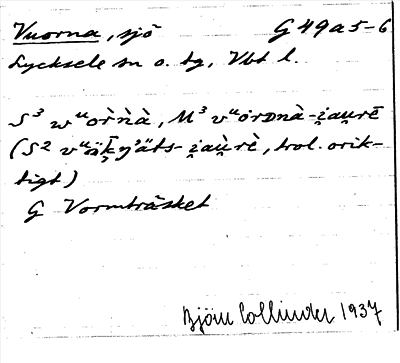 Vuorna, sjö G 49 a 5-6
Lycksele sn o. tg, Vbt l.
S³ wᵘòrǹà, M³ vᵘòrᴅnà-i̯au̯rē
(S² vᵘäk̄ŋ'äts-i̯au̯rè, trol. orik-
tigt)
G Vormträsket
Björn Collinder 1937